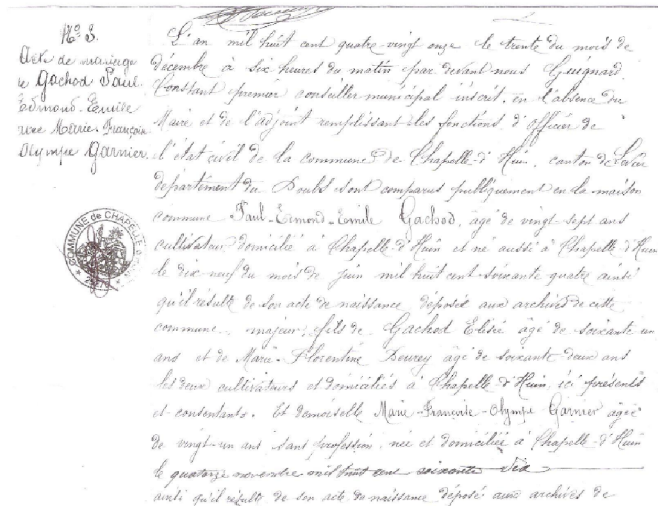 N° 3.
Acte de mariage
de Gachod Paul
Edmond-Emile
avec Marie-Françoise
Olympe Garnier.
L'an mil huit cent quatre-vingt onze le trente du mois de
Décembre à six heures du matin par devant nous Guignard
Constant premier conseiller municipal inscrit, en l'absence du
Maire et de l'adjoint remplissant les fonctions d'officier de
l'état civil de la commune de Chapelle-d'Huin, canton de Levier
département du Doubs sont comparus publiquement en la maison
commune Paul-Edmond-Emile Gachod, agé de vingt-sept ans
cultivateur domicilié à Chapelle d'Huin et né aussi à Chapelle d'Huin
le dix-neuf du mois de juin mil huit cent-soixante quatre ainsi
qu'il résulte de son acte de naissance déposé aux archives de cette
commune. majeur, fils de Gachod Elisé âgé de soixante un
ans et de Marie-Florentine Dewrey âgé de soixante deux ans
les deux cultivateurs et domiciliés à Chapelle d'Huin, ici présents
et consentants. Et demoiselle Marie-Françoise-Olympe Garnier âgée
de vingt-un ans sans profession, née et domiciliée à Chapelle-d'Huin
le quatorze novembre mil huit cent soixante dix
ainsi qu'il résulte de son acte de naissance déposé aux archives de
COMMUNE de CHAPELLE